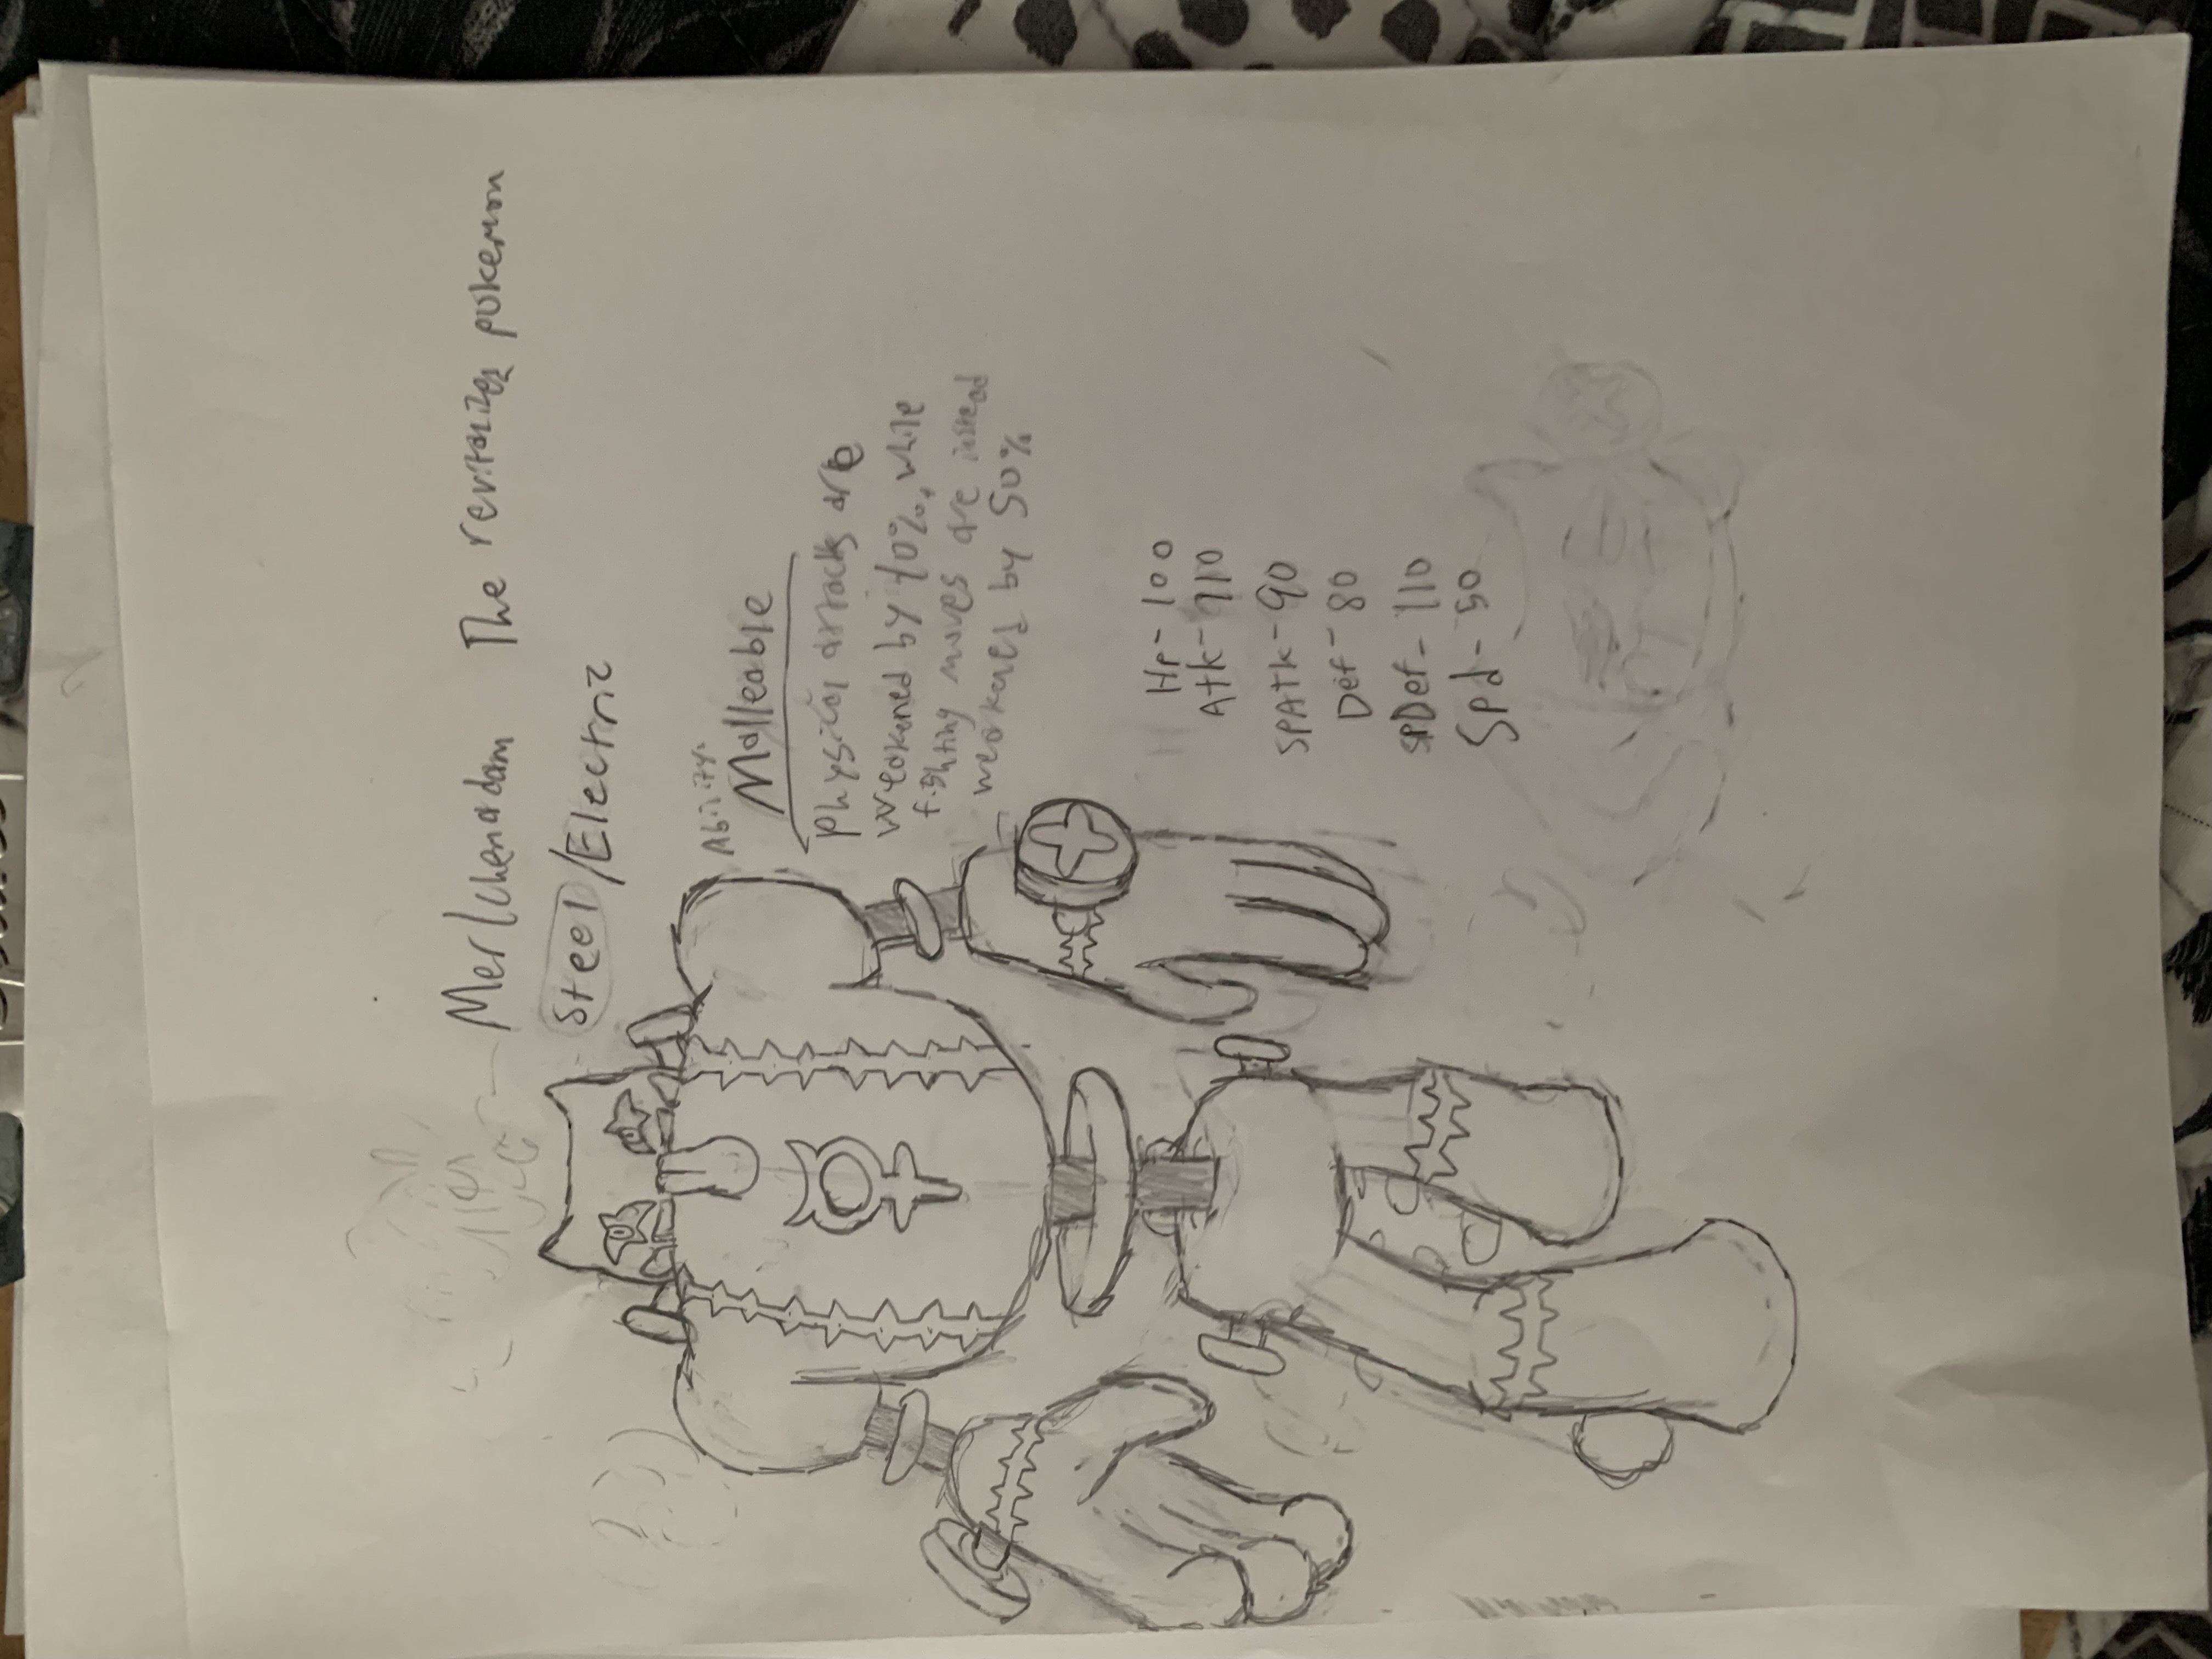 Merlchemadam The revitalizer pokemon
Steel/Electric
Ability:
Malleable
Physical attacks are
weakened by 40%, while
fighting moves are instead
weakened by 50%
HP - 100
Atk - 110
SPAtk - 90
Def - 80
SPDef - 110
Spd - 50